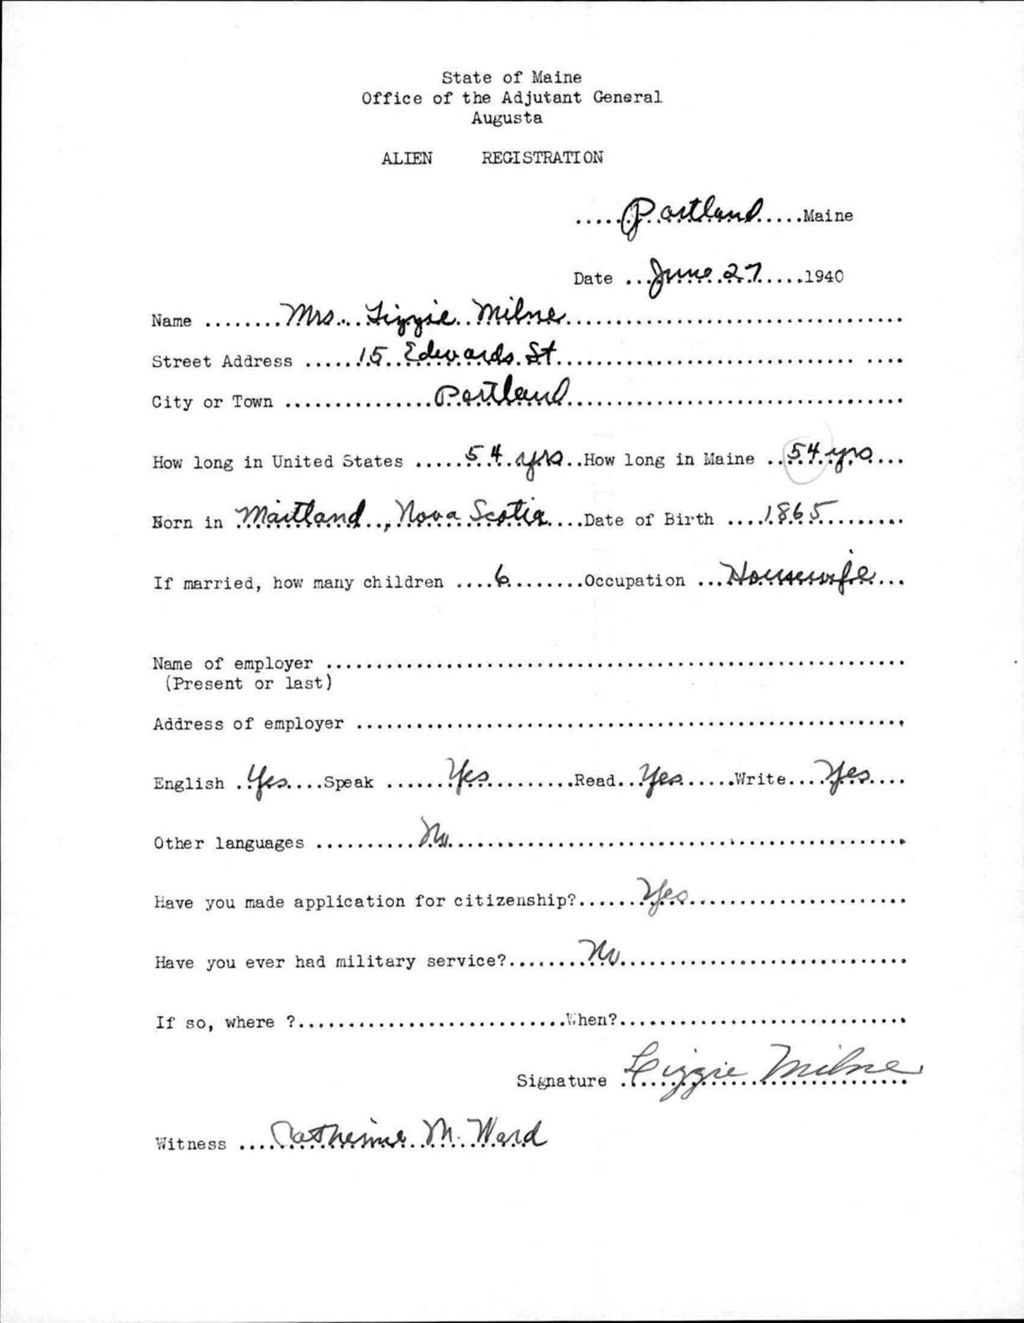 State of Maine
Office of the Adjutant General
Augusta
ALIEN REGISTRATION
.....Portland.....Maine
Date ...June 27.....1940
Name ........Mrs. Lizzie Milne..................................
Street Address .....15 Edwards St...................................
City or Town ...............Portland..................................
How long in United States .....54 yrs..How long in Maine ..54 yrs...
Born in Maitland, Nova Scotia....Date of Birth ....1865.........
If married, how many children ....6........Occupation ...Housewife...
Name of employer ..........................................................
(Present or last)
Address of employer .......................................................
English ..Yes....Speak ......Yes..........Read..Yes......Write....Yes....
Other languages ..........No..............................................
Have you made application for citizenship?......Yes......................
Have you ever had military service?........No.............................
If so, where ?...........................When?.............................
Signature Lizzie Milne
Witness ....Catherine M. Ward